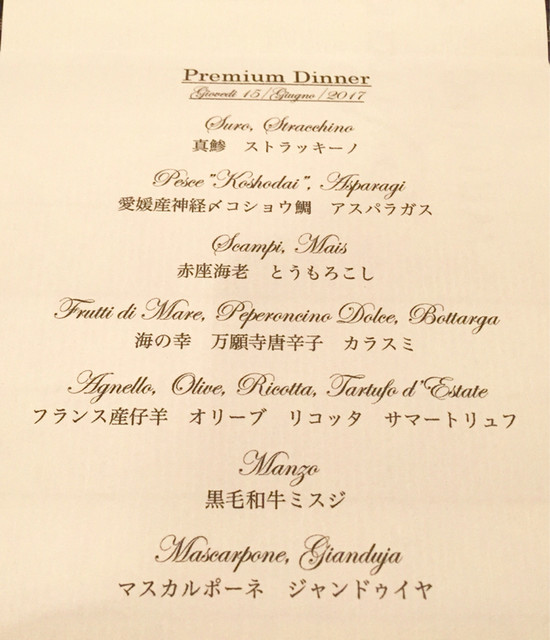 Premium Dinner
Giovedì 15/Giugno/2017
Suro, Stracchino
真鯵　ストラッキーノ
Pesce "Koshodai", Asparagi
愛媛産神経〆コショウ鯛　アスパラガス
Scampi, Mais
赤座海老　とうもろこし
Frutti di Mare, Peperoncino Dolce, Bottarga
海の幸　万願寺唐辛子　カラスミ
Agnello, Olive, Ricotta, Tartufo d'Estate
フランス産仔羊　オリーブ　リコッタ　サマートリュフ
Manzo
黒毛和牛ミスジ
Mascarpone, Gianduja
マスカルポーネ　ジャンドゥイヤ